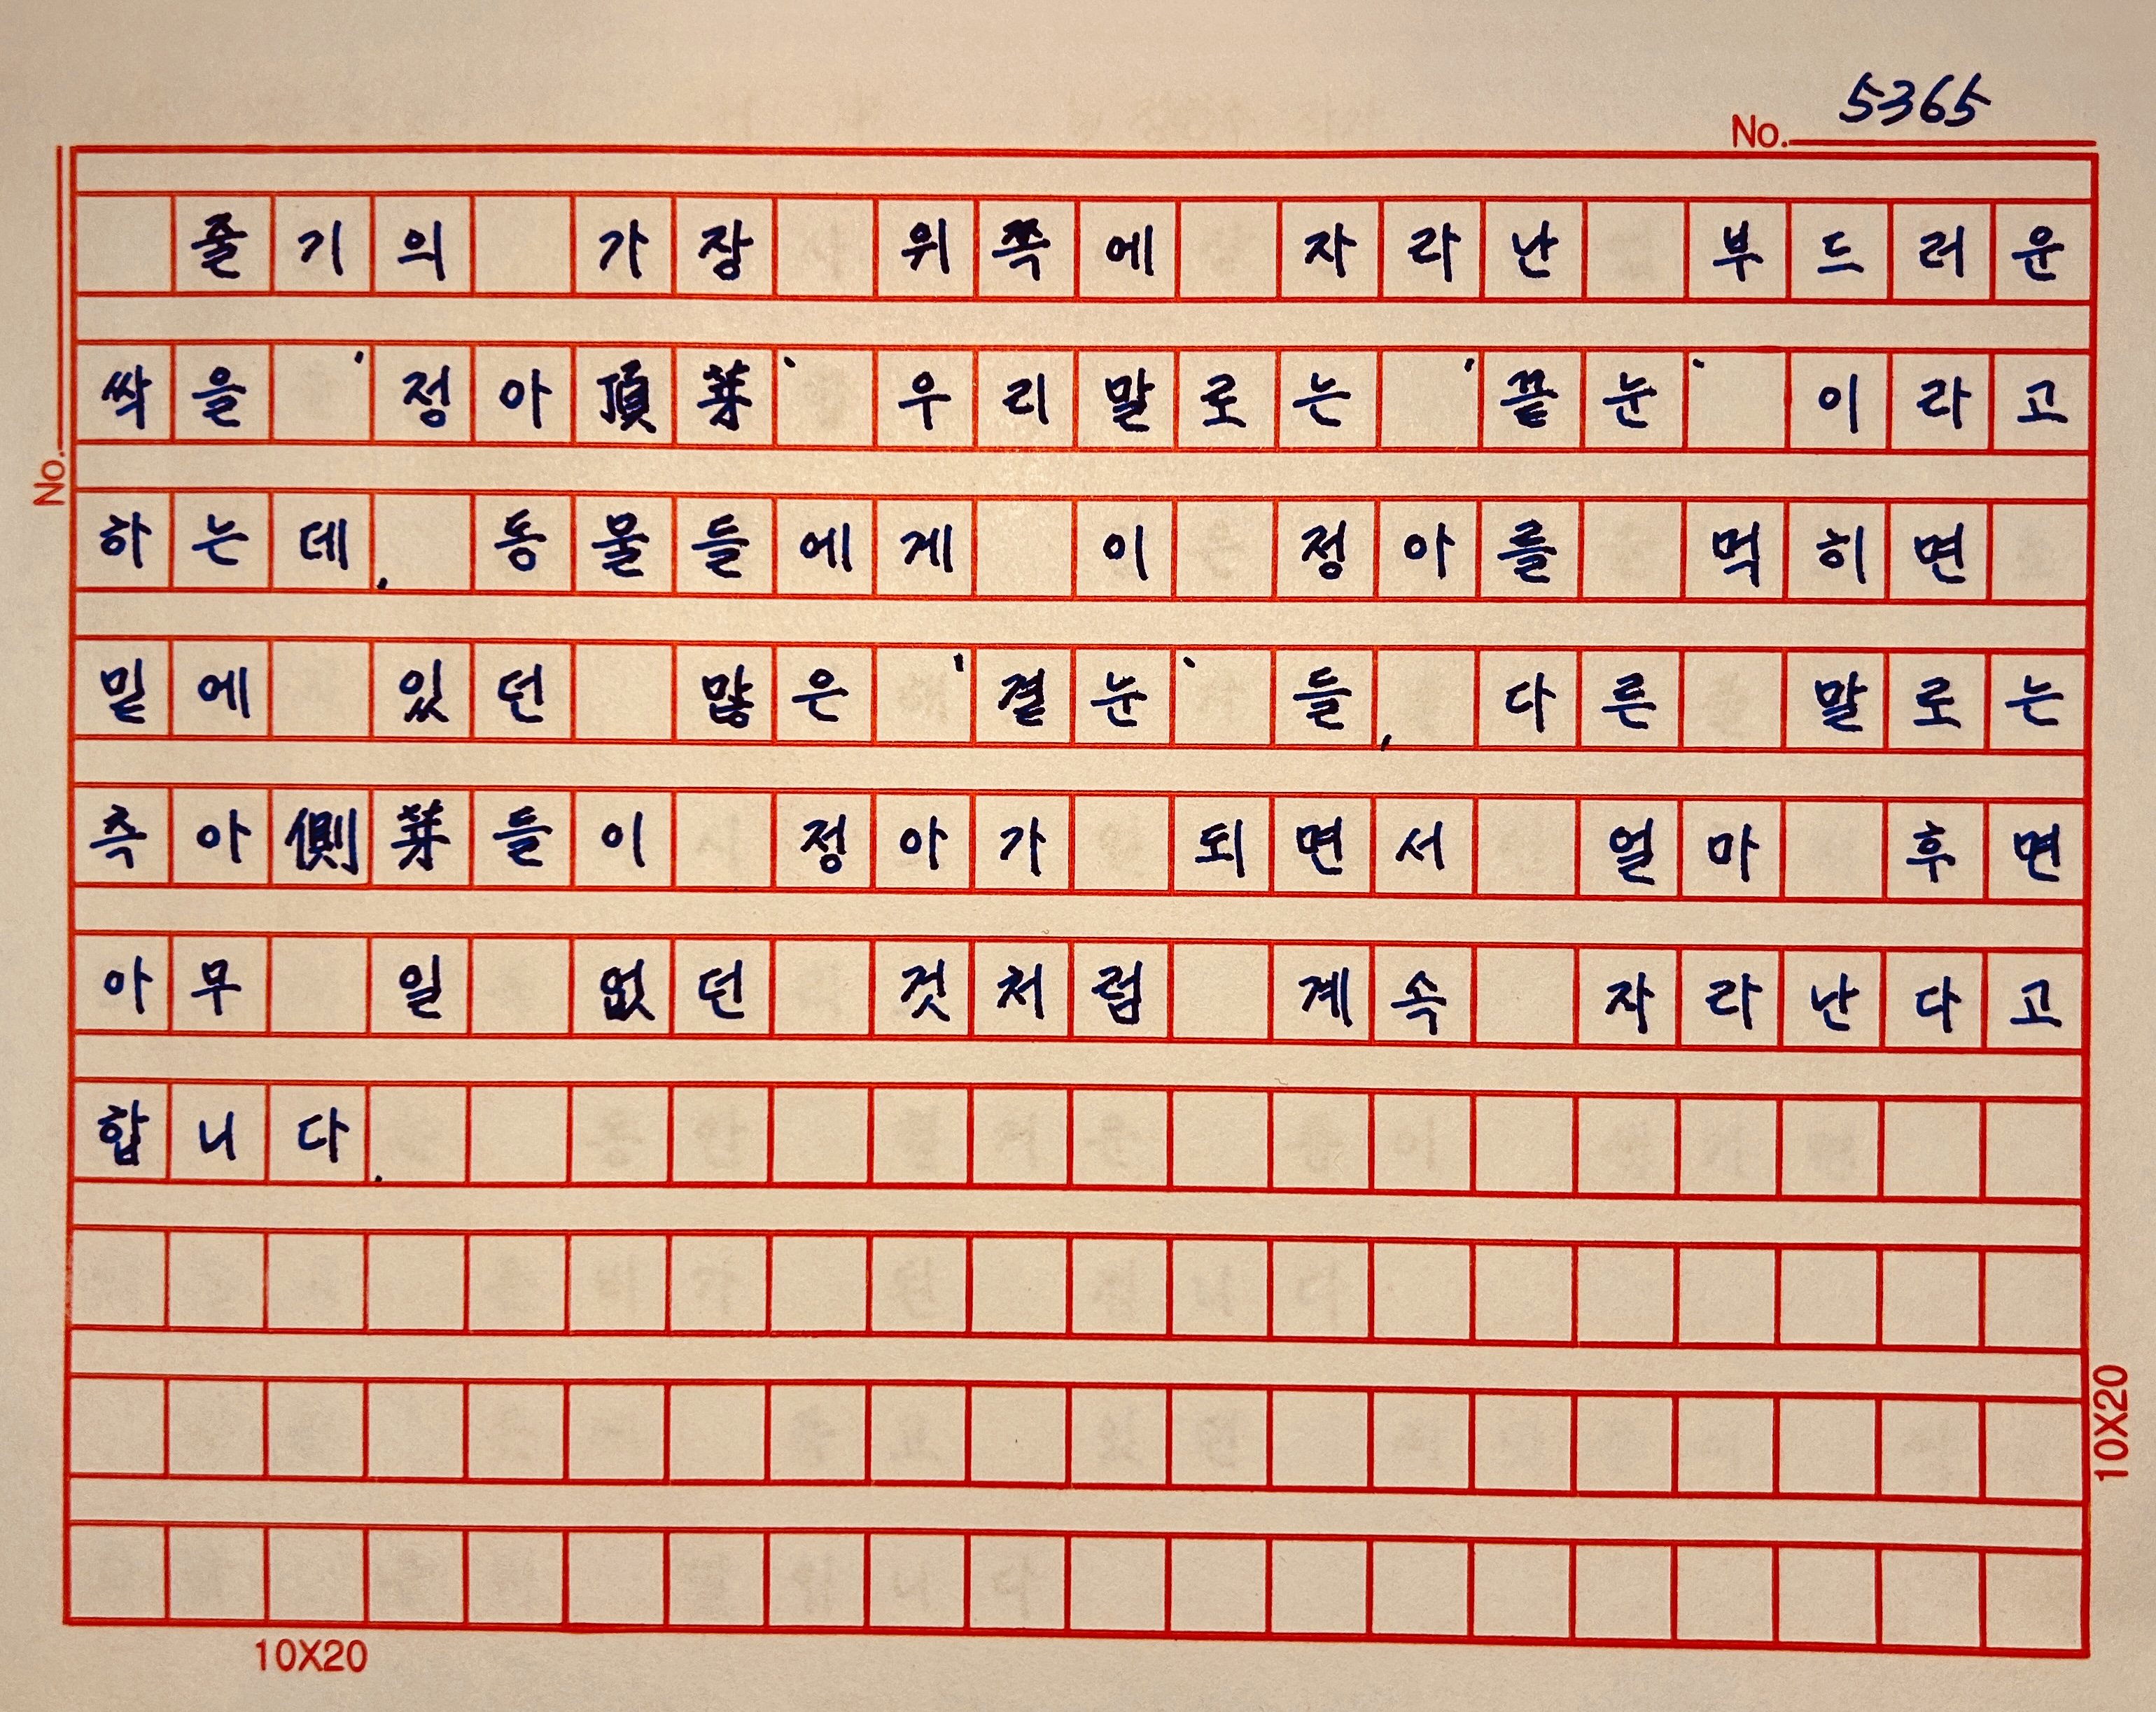 5365
No.
줄기의 가장 위쪽에 자라난 부드러운
싹을 '정아頂芽' 우리말로는 '끝눈' 이라고
하는데, 동물들에게 이 정아를 먹히면
밑에 있던 많은 '곁눈' 들, 다른 말로는
측아側芽들이 정아가 되면서 얼마 후면
아무 일 없던 것처럼 계속 자라난다고
합니다.
No.
10X20
10X20